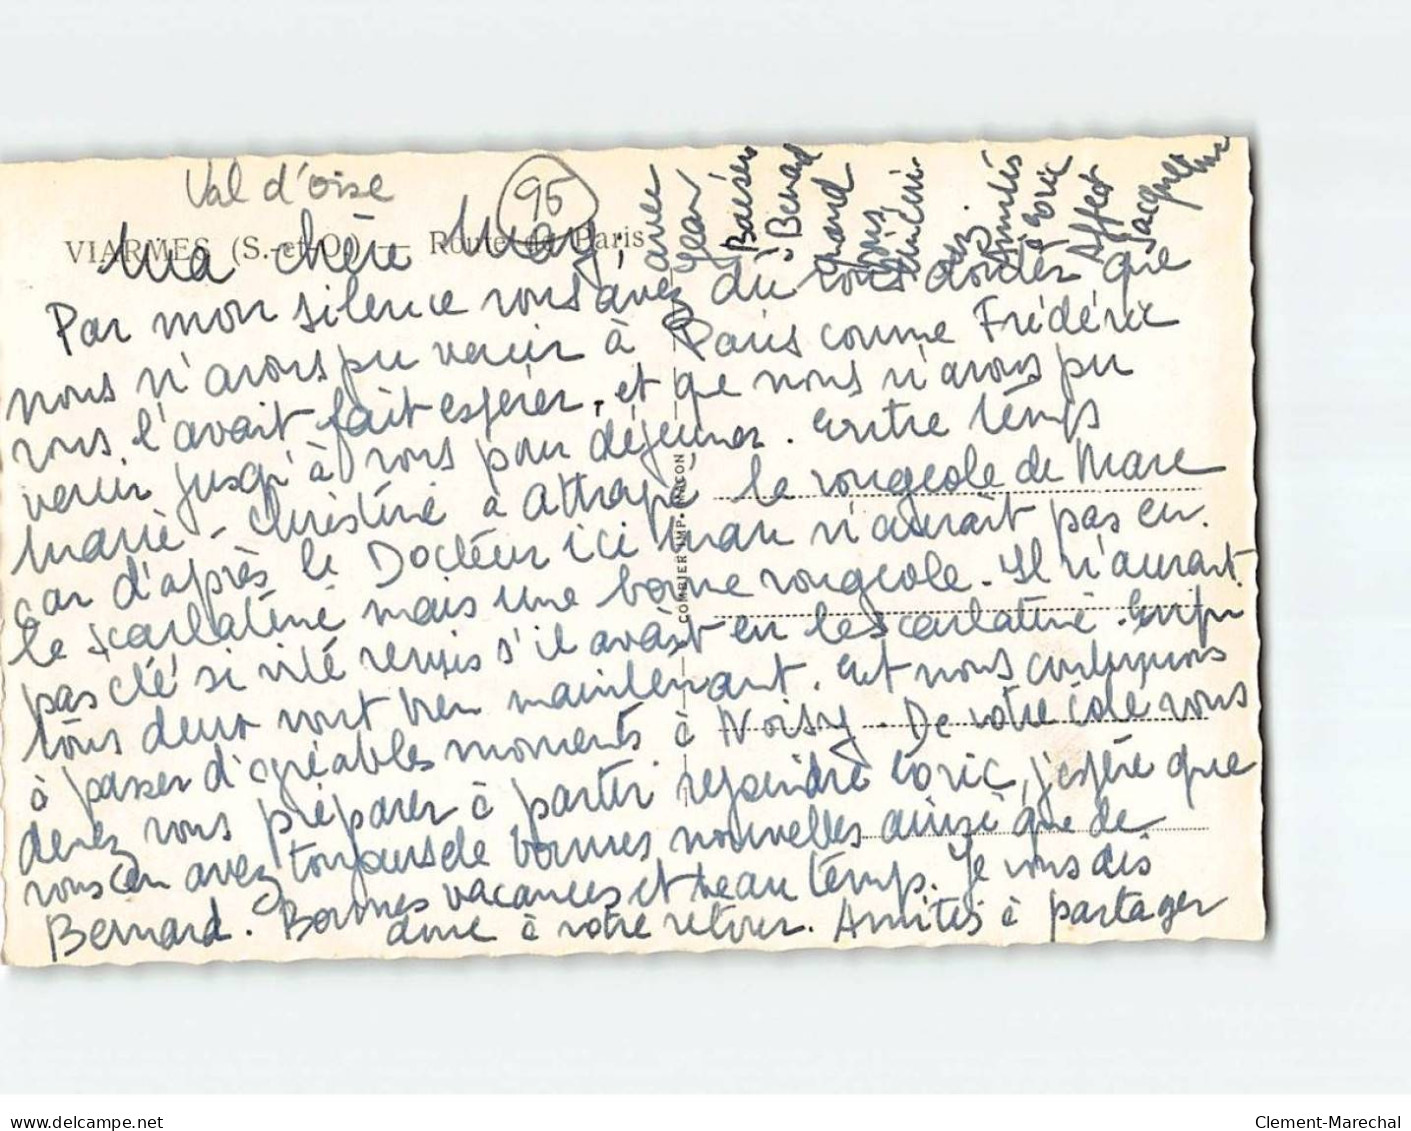 Val d'oise
95
VIARMES (S.-et-O.) — Route de Paris
Ma chère May,
Par mon silence vous avez dû vous douter que
nous n'avons pu venir à Paris comme Frédéric
vous l'avait fait espérer, et que nous n'avons pu
venir jusqu'à vous pour déjeuner. Entre temps
Marie-Christine a attrapé la rougeole de Marc
car d'après le Docteur ici Marc n'aurait pas eu
la scarlatine mais une bonne rougeole. Il n'aurait
pas été si vite remis s'il avait eu la scarlatine. Enfin
tous deux vont bien maintenant. Et nous continuons
à passer d'agréables moments à Noisy. De votre côté vous
devez vous préparer à partir rejoindre Loric, j'espère que
vous en avez toujours de bonnes nouvelles ainsi que de
Bernard. Bonnes vacances et beau temps. Je vous dis
donc à votre retour. Amitiés à partager
avec
Jean
Baisers
à Bernard
quand
vous
Amitiés
à Loric
Affect
Jacqueline
COMBIER IMP. MACON
delcampe.net
Clement-Marechal